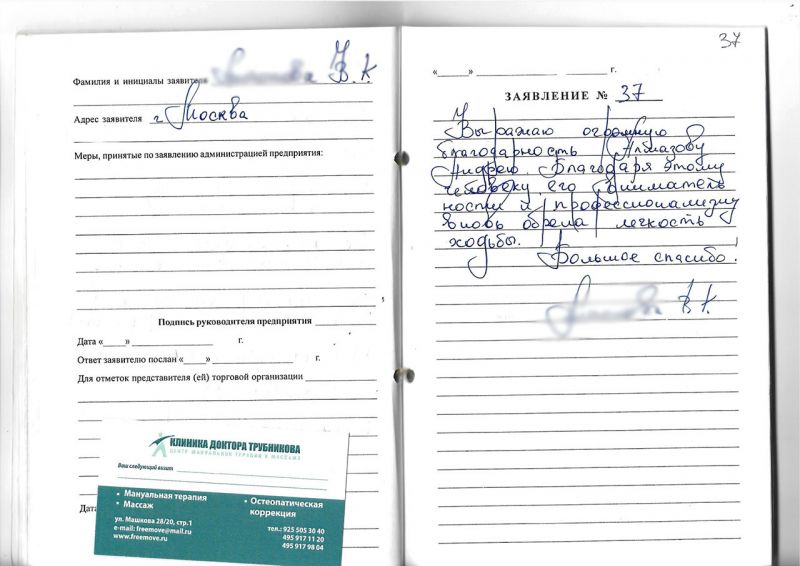 Фамилия и инициалы заявителя В. К
Адрес заявителя г Москва
Меры, принятые по заявлению администрацией предприятия:
Подпись руководителя предприятия
Дата «____» ____________ г.
Ответ заявителю послан «____» ____________ г.
Для отметок представителя (ей) торговой организации
Дата
КЛИНИКА ДОКТОРА ТРУБНИКОВА
ЦЕНТР МАНУАЛЬНОЙ ТЕРАПИИ И МАССАЖА
Ваш следующий визит
• Мануальная терапия
• Массаж
• Остеопатическая
коррекция
ул. Машкова 28/20, стр.1
e-mail: freemove@mail.ru
www.freemove.ru
тел.: 925 505 30 40
495 917 11 20
495 917 98 04
37
«____» ____________ ____ г.
ЗАЯВЛЕНИЕ № 37
Выражаю огромную
благодарность Алмазову
Андрею. Благодаря этому
человеку, его вниматель
ности и профессионализму
вновь обрела легкость
ходьбы.
Большое спасибо!
В. К.